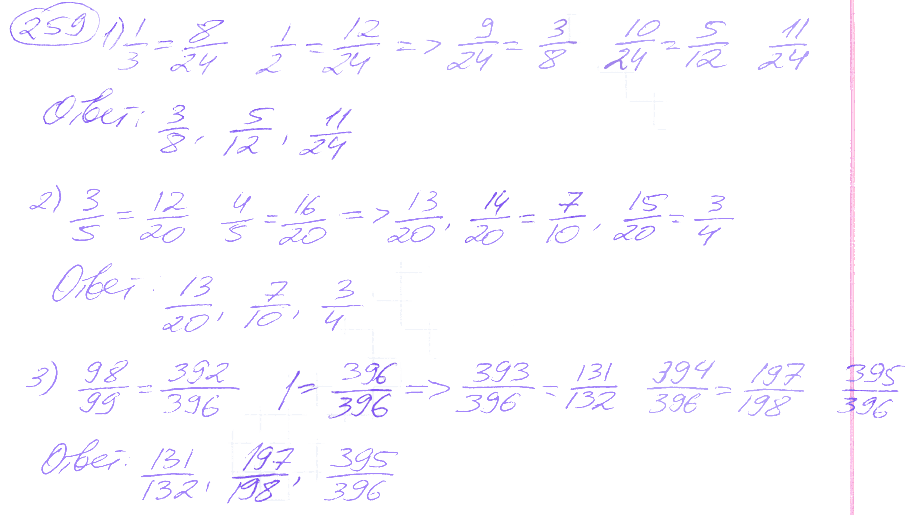 259 1) 1/3 = 8/24 1/2 = 12/24 => 9/24 = 3/8 10/24 = 5/12 11/24
Ответ: 3/8, 5/12, 11/24
2) 3/5 = 12/20 4/5 = 16/20 => 13/20, 14/20 = 7/10, 15/20 = 3/4
Ответ: 13/20, 7/10, 3/4
3) 98/99 = 392/396 1 = 396/396 => 393/396 = 131/132 394/396 = 197/198 395/396
Ответ: 131/132, 197/198, 395/396